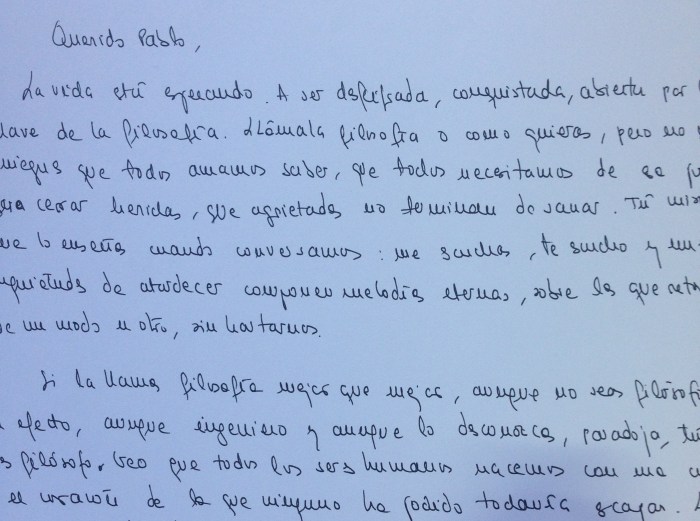 Querido Pablo,
La vida está esperando. A ser descifrada, conquistada, abierta por
llave de la filosofía. Llámala filosofía o como quieras, pero no
niegues que todos amamos saber, que todos necesitamos de ese
para cerrar heridas, que agrietadas no terminan de sanar. Tú mismo
me lo enseñas cuando conversamos: me escuchas, te escucho y
inquietudes de atardecer componen melodías eternas, sobre las que
de un modo u otro, sin hartarnos.
Si la llamas filosofía mejor que mejor, aunque no seas filósofo
efecto, aunque ingeniero y aunque lo desconozcas, paradoja, tú
filósofo. Creo que todos los seres humanos nacemos con una
el corazón de la que ninguno ha podido todavía escapar.